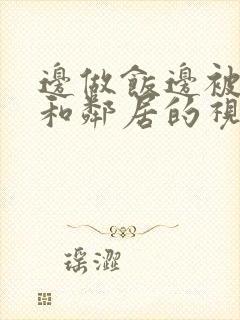 邊做飯邊被
和鄰居的視
瑶澀